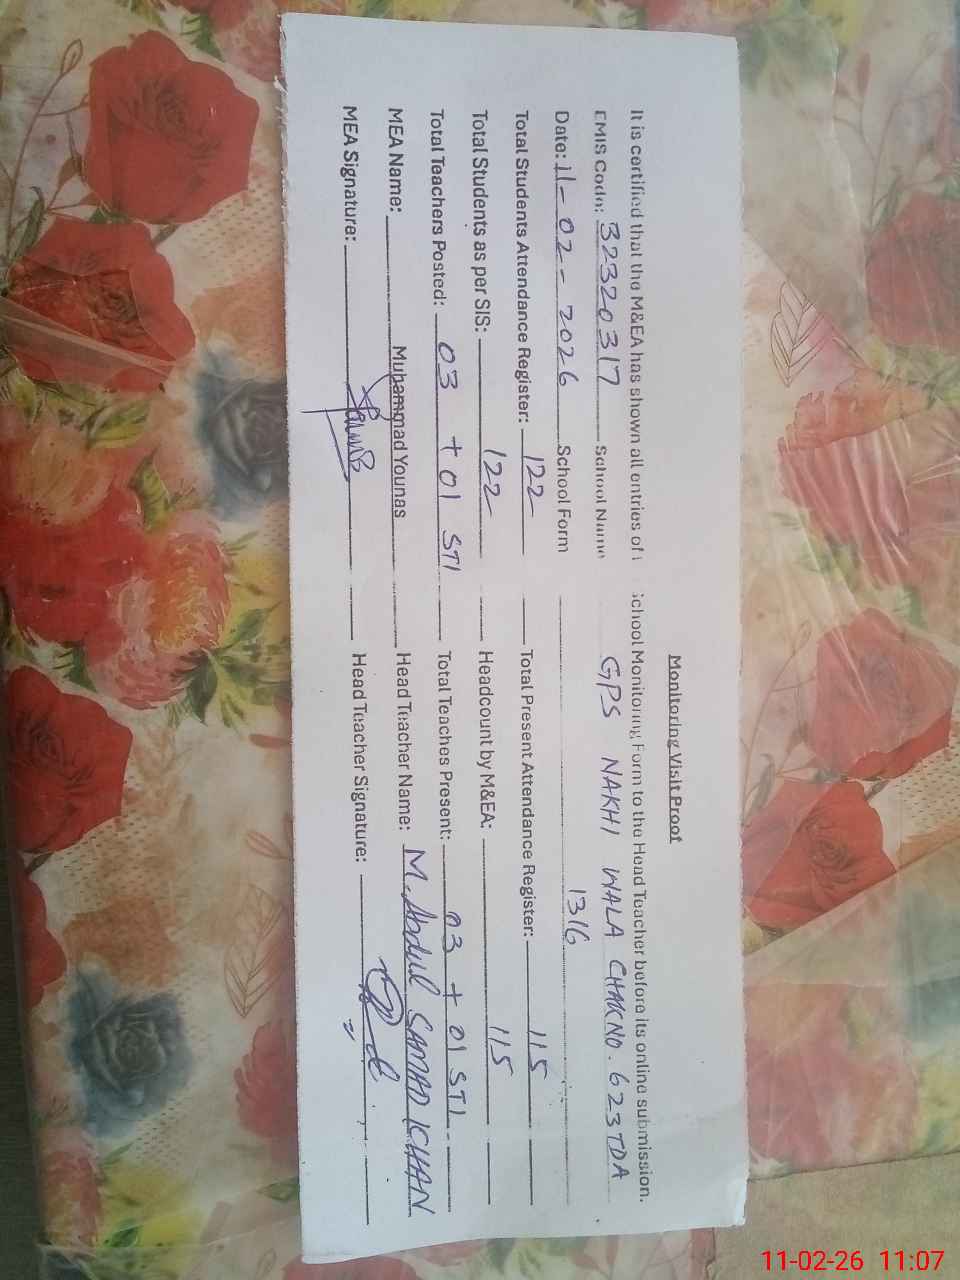 Monitoring Visit Proof
It is certified that the M&EA has shown all entries of School Monitoring Form to the Head Teacher before its online submission.
EMIS Code: 32320317 School Name GPS NAKHI WALA CHAK NO. 623 TDA
Date: 11-02-2026 School Form 1316
Total Students Attendance Register: 122 Total Present Attendance Register: 115
Total Students as per SIS: 122 Headcount by M&EA: 115
Total Teachers Posted: 03 + 01 STI Total Teaches Present: 03 + 01 STI
MEA Name: Muhammad Younas Head Teacher Name: M. Abdul SAMAD KHAN
MEA Signature: Head Teacher Signature:
11-02-26 11:07